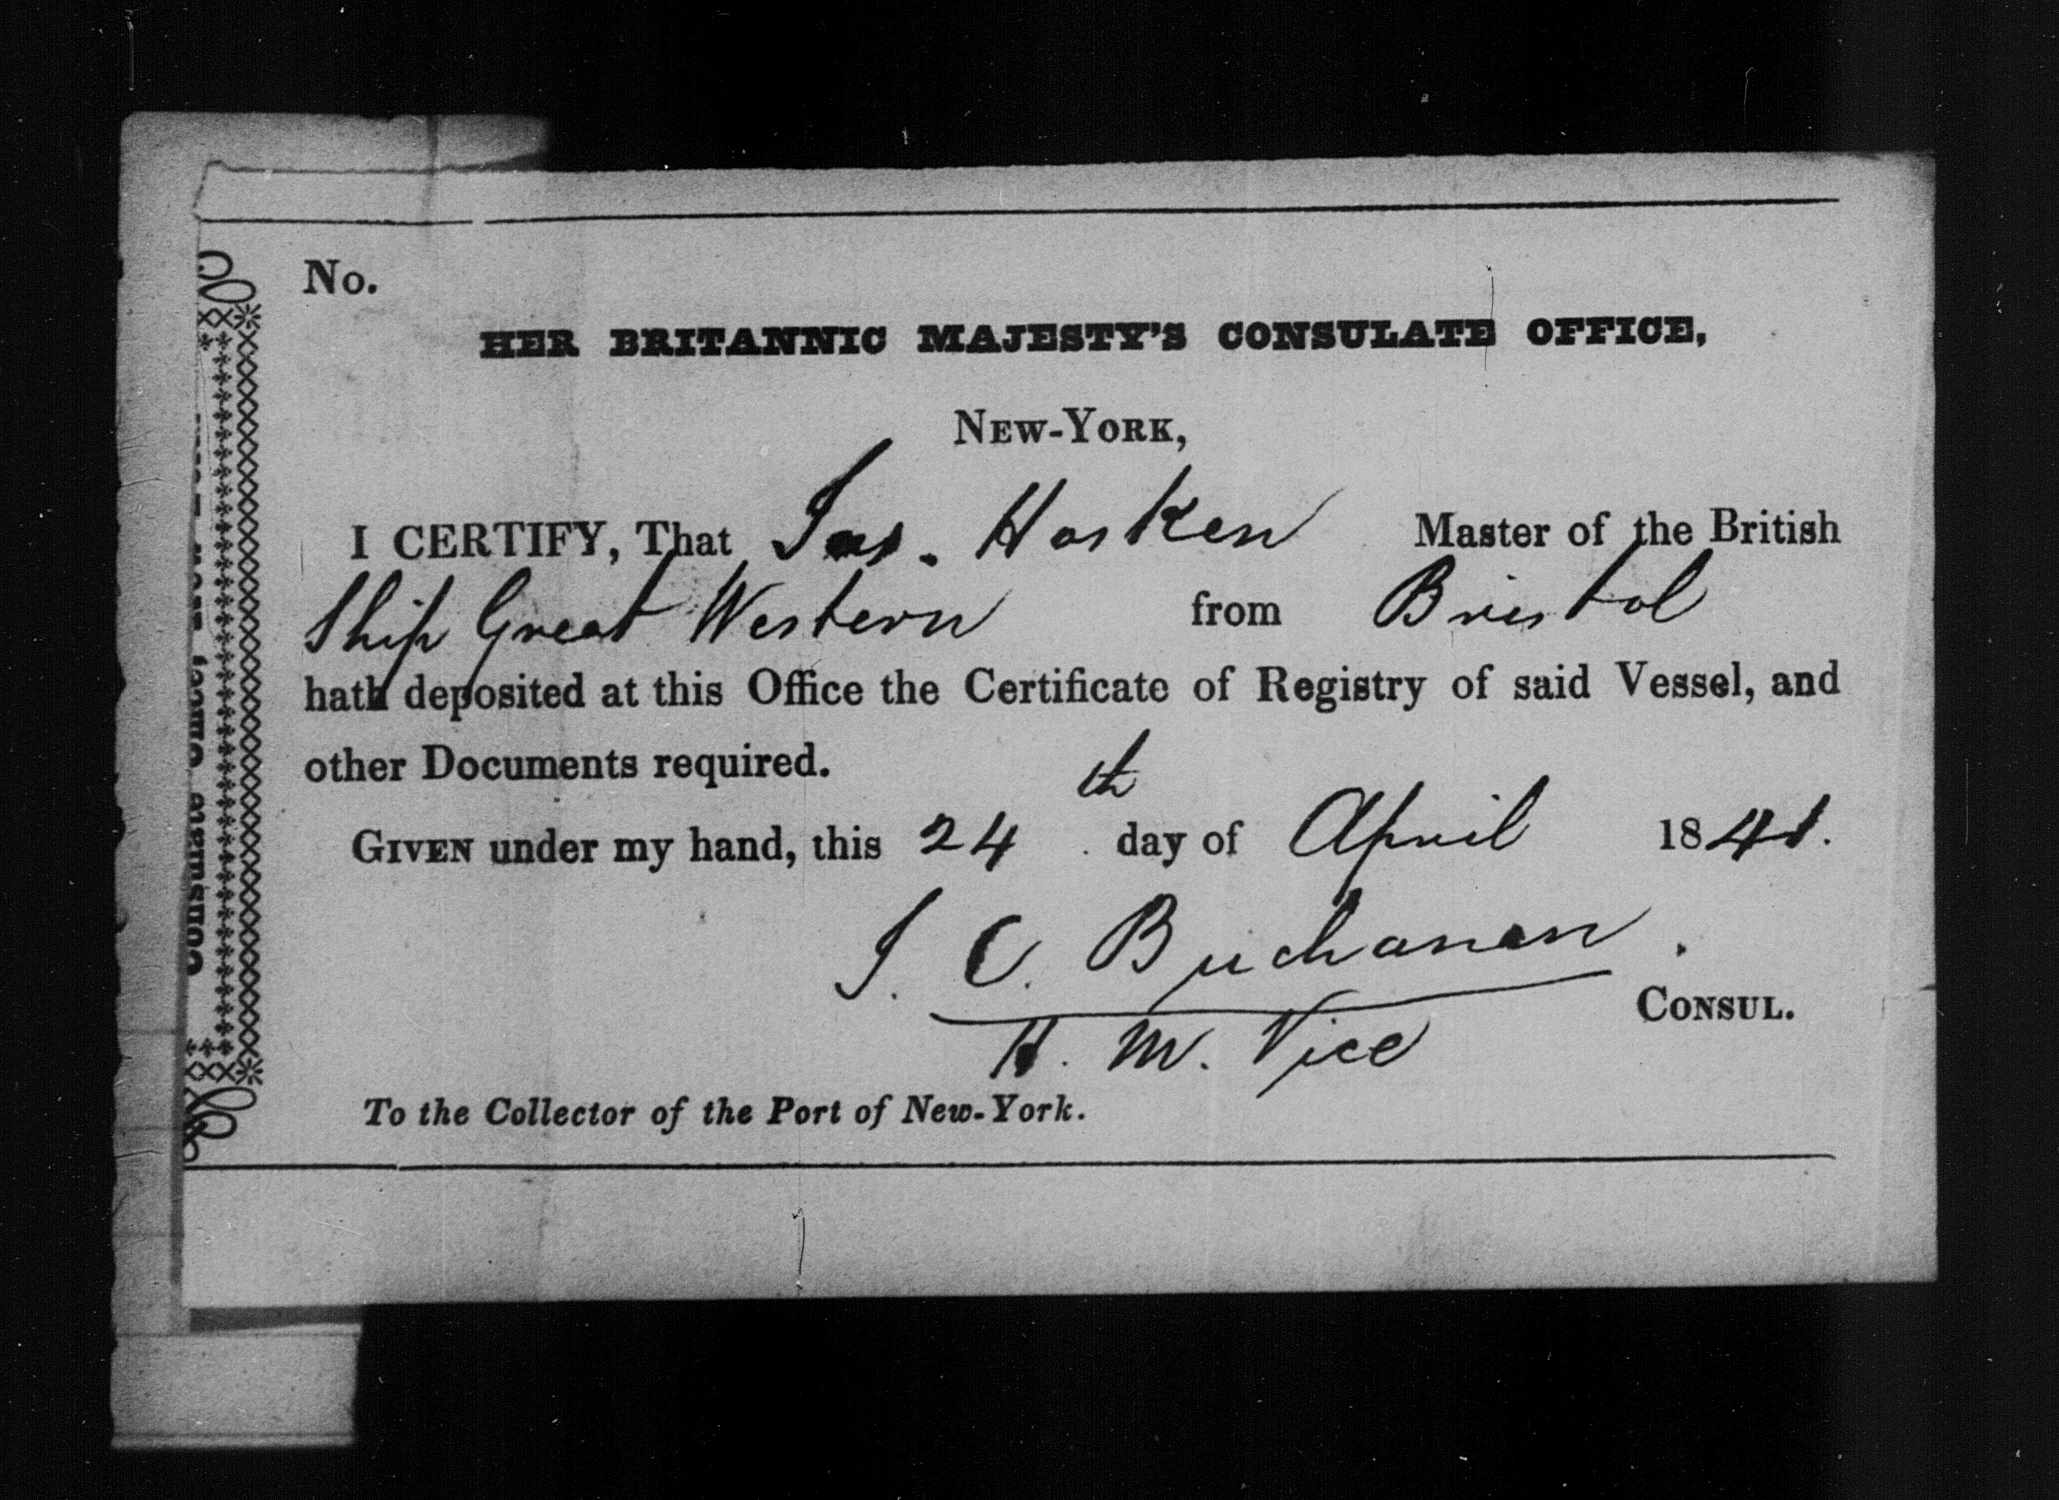 No.
HER BRITANNIC MAJESTY'S CONSULATE OFFICE,
NEW-YORK,
I CERTIFY, That Jas. Hosken Master of the British
Ship Great Western from Bristol
hath deposited at this Office the Certificate of Registry of said Vessel, and
other Documents required.
GIVEN under my hand, this 24th day of April 1841.
J. C. Buchanan.
H. M. Vice CONSUL.
To the Collector of the Port of New-York.